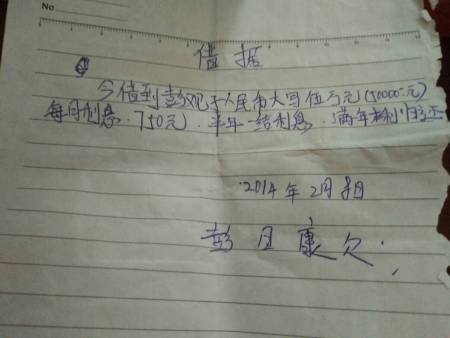 No
借据
今借到彭现于人民币大写伍万元(50000元)
每月利息.750元.半年一结利息.满年本利归还
2014年2月8日
彭 康欠.